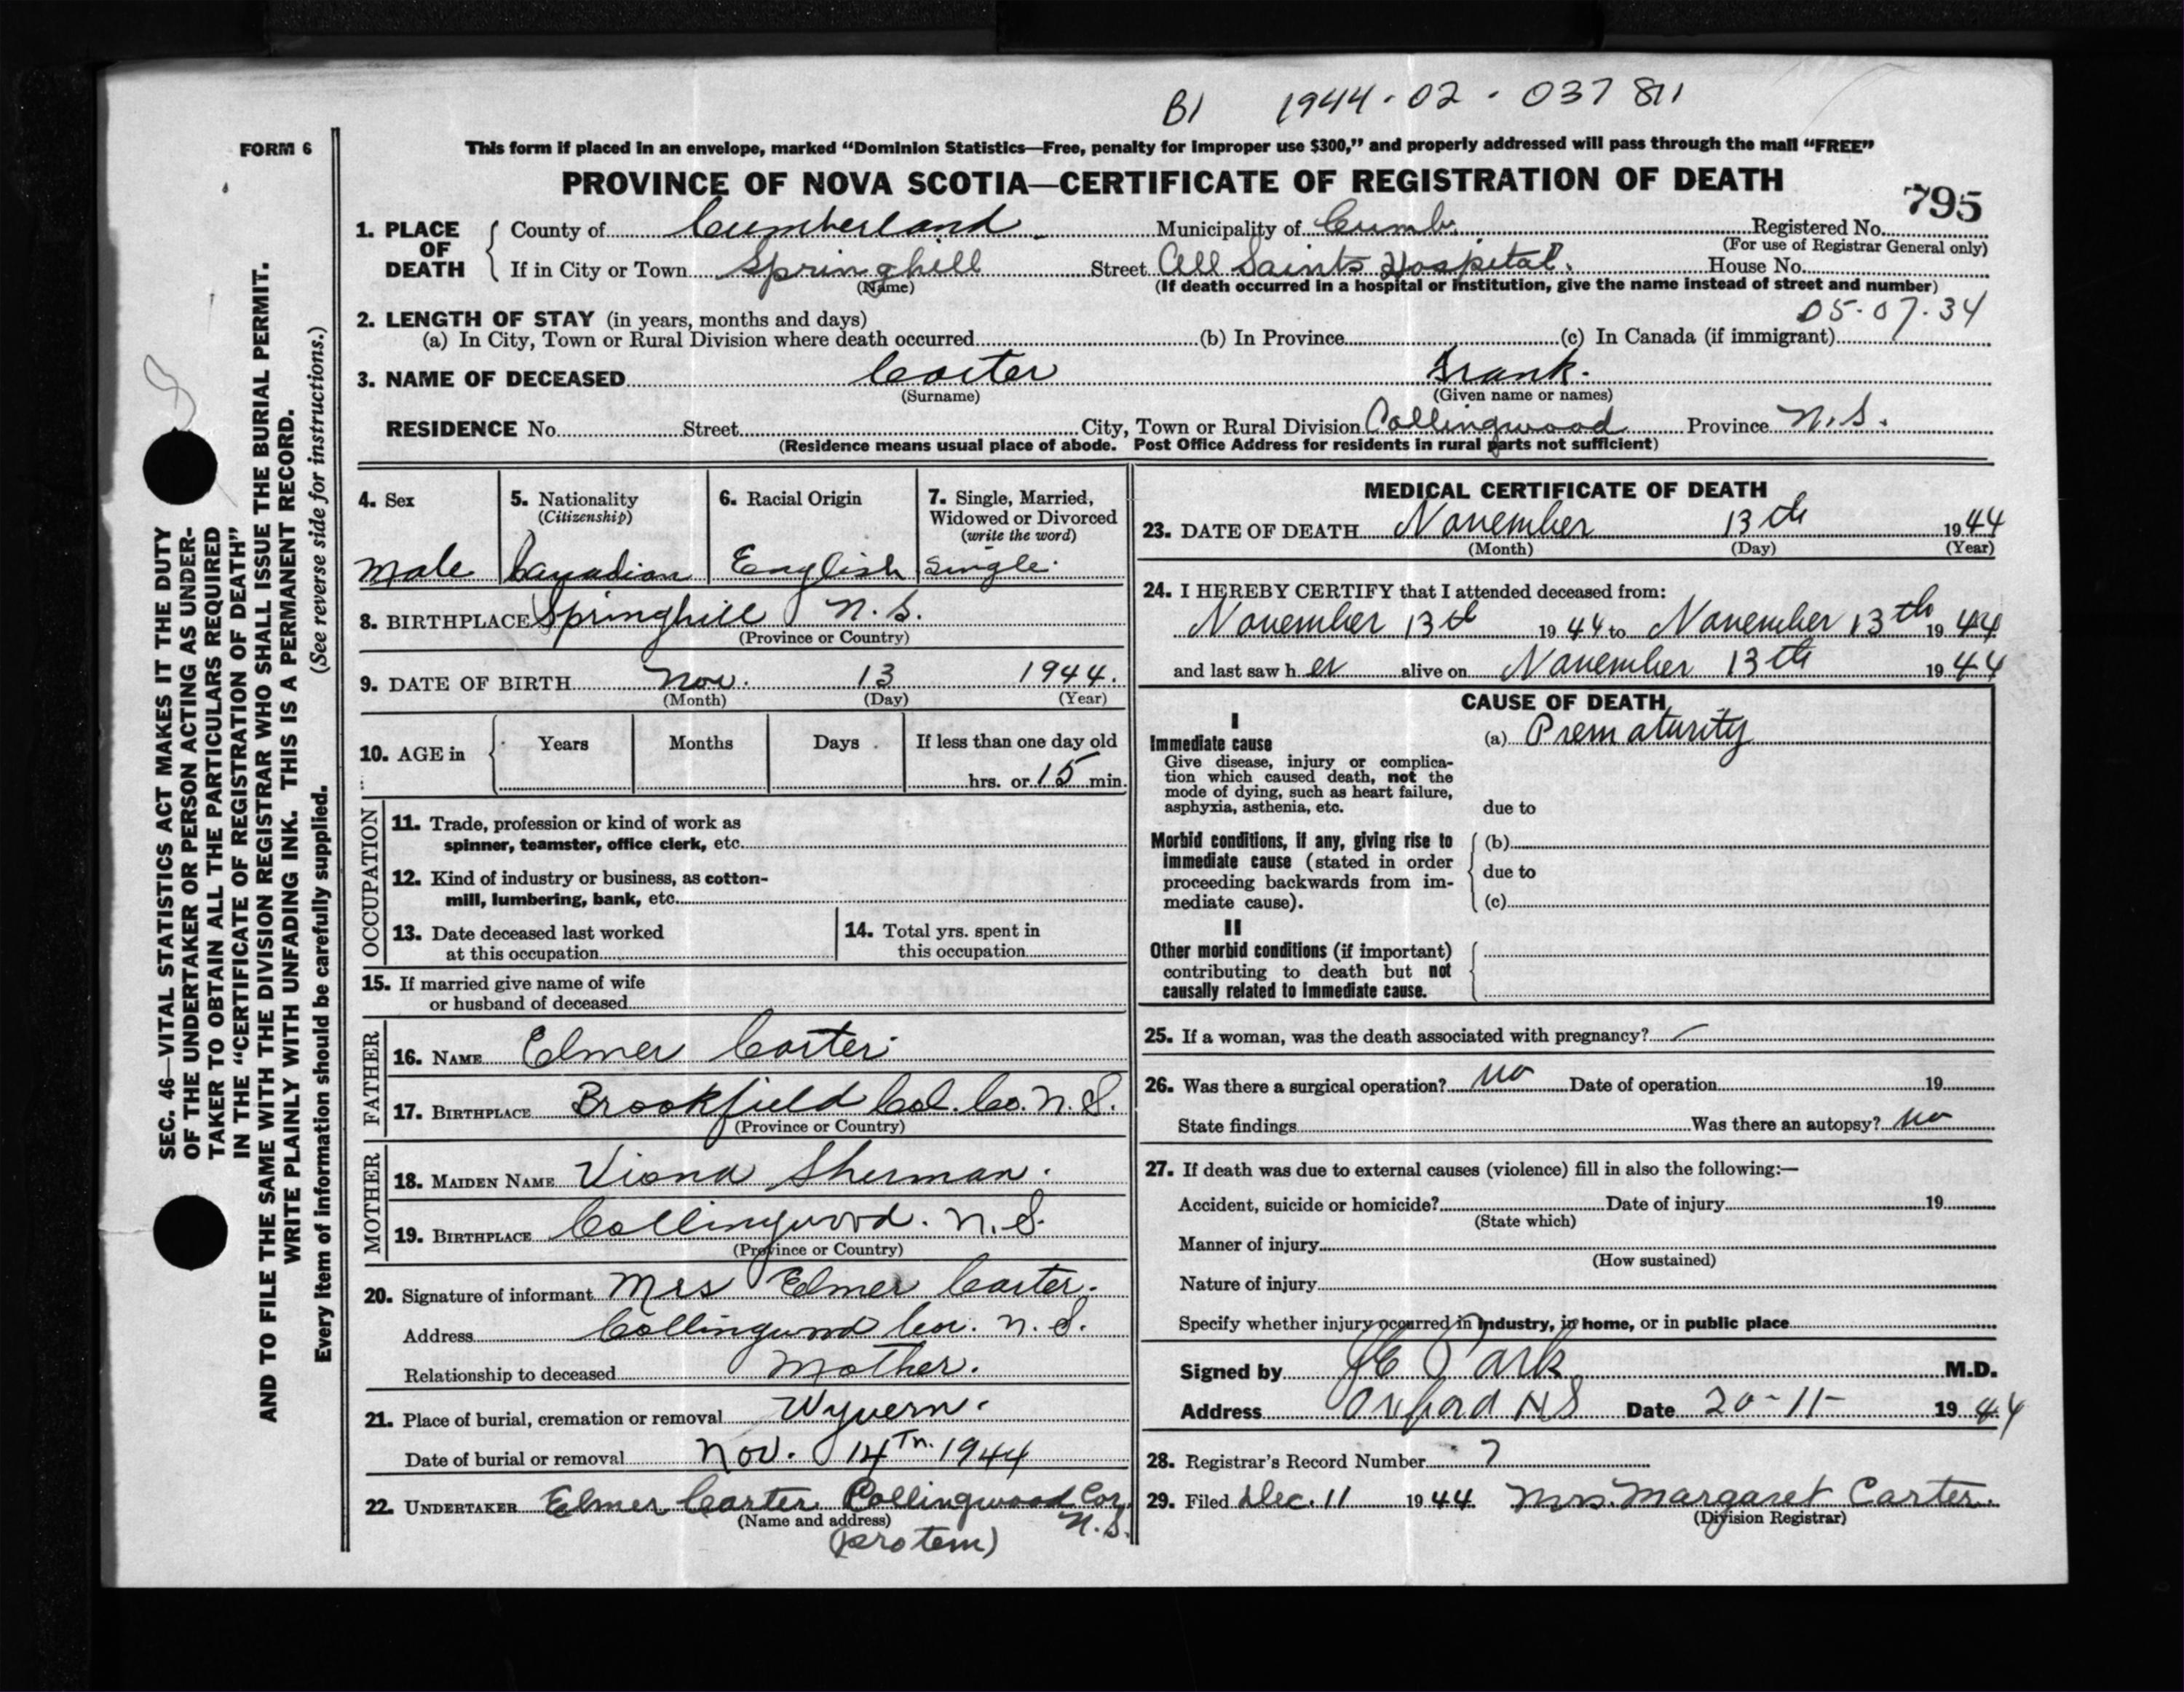 B1 1944-02-037811
FORM 6
This form if placed in an envelope, marked "Dominion Statistics—Free, penalty for improper use $300," and properly addressed will pass through the mail "FREE"
PROVINCE OF NOVA SCOTIA—CERTIFICATE OF REGISTRATION OF DEATH
795
1. PLACE OF DEATH County of Cumberland Municipality of Cumb. Registered No.
(For use of Registrar General only)
If in City or Town Springhill Street All Saints Hospital. House No.
(Name) (If death occurred in a hospital or institution, give the name instead of street and number)
05-07-34
2. LENGTH OF STAY (in years, months and days)
(a) In City, Town or Rural Division where death occurred (b) In Province (c) In Canada (if immigrant)
3. NAME OF DECEASED Carter Frank.
(Surname) (Given name or names)
RESIDENCE No. Street City, Town or Rural Division Collingwood Province N.S.
(Residence means usual place of abode. Post Office Address for residents in rural parts not sufficient)
4. Sex Male
5. Nationality (Citizenship) Canadian
6. Racial Origin English
7. Single, Married, Widowed or Divorced (write the word) Single.
8. BIRTHPLACE Springhill N.S.
(Province or Country)
9. DATE OF BIRTH Nov. 13 1944.
(Month) (Day) (Year)
10. AGE in Years Months Days If less than one day old
hrs. or 15 min.
OCCUPATION
11. Trade, profession or kind of work as
spinner, teamster, office clerk, etc.
12. Kind of industry or business, as cotton-
mill, lumbering, bank, etc.
13. Date deceased last worked
at this occupation
14. Total yrs. spent in
this occupation
15. If married give name of wife
or husband of deceased
FATHER
16. NAME Elmer Carter
17. BIRTHPLACE Brookfield Col. Co. N.S.
(Province or Country)
MOTHER
18. MAIDEN NAME Viona Sherman.
19. BIRTHPLACE Collingwood. N.S.
(Province or Country)
20. Signature of informant Mrs Elmer Carter.
Address Collingwood Cor. N.S.
Relationship to deceased Mother.
21. Place of burial, cremation or removal Wyvern.
Date of burial or removal Nov. 14th. 1944
22. UNDERTAKER Elmer Carter Collingwood Cor. N.S.
(Name and address)
(protem)
MEDICAL CERTIFICATE OF DEATH
23. DATE OF DEATH November 13th 1944
(Month) (Day) (Year)
24. I HEREBY CERTIFY that I attended deceased from:
November 13th 1944 to November 13th 1944
and last saw h er alive on November 13th 1944
CAUSE OF DEATH
I
Immediate cause
Give disease, injury or complica-
tion which caused death, not the
mode of dying, such as heart failure,
asphyxia, asthenia, etc.
(a) Prematurity
due to
Morbid conditions, if any, giving rise to
immediate cause (stated in order
proceeding backwards from im-
mediate cause).
(b)
due to
(c)
II
Other morbid conditions (if important)
contributing to death but not
causally related to immediate cause.
25. If a woman, was the death associated with pregnancy? —
26. Was there a surgical operation? no Date of operation 19
State findings Was there an autopsy? no
27. If death was due to external causes (violence) fill in also the following:—
Accident, suicide or homicide? Date of injury 19
(State which)
Manner of injury
(How sustained)
Nature of injury
Specify whether injury occurred in industry, in home, or in public place
Signed by Park M.D.
Address Oxford NS Date 20-11- 1944
28. Registrar's Record Number 7
29. Filed Dec. 11 1944 Mrs. Margaret Carter.
(Division Registrar)
SEC. 46—VITAL STATISTICS ACT MAKES IT THE DUTY
OF THE UNDERTAKER OR PERSON ACTING AS UNDER-
TAKER TO OBTAIN ALL THE PARTICULARS REQUIRED
IN THE "CERTIFICATE OF REGISTRATION OF DEATH"
AND TO FILE THE SAME WITH THE DIVISION REGISTRAR WHO SHALL ISSUE THE BURIAL PERMIT.
WRITE PLAINLY WITH UNFADING INK. THIS IS A PERMANENT RECORD.
Every item of information should be carefully supplied. (See reverse side for instructions.)